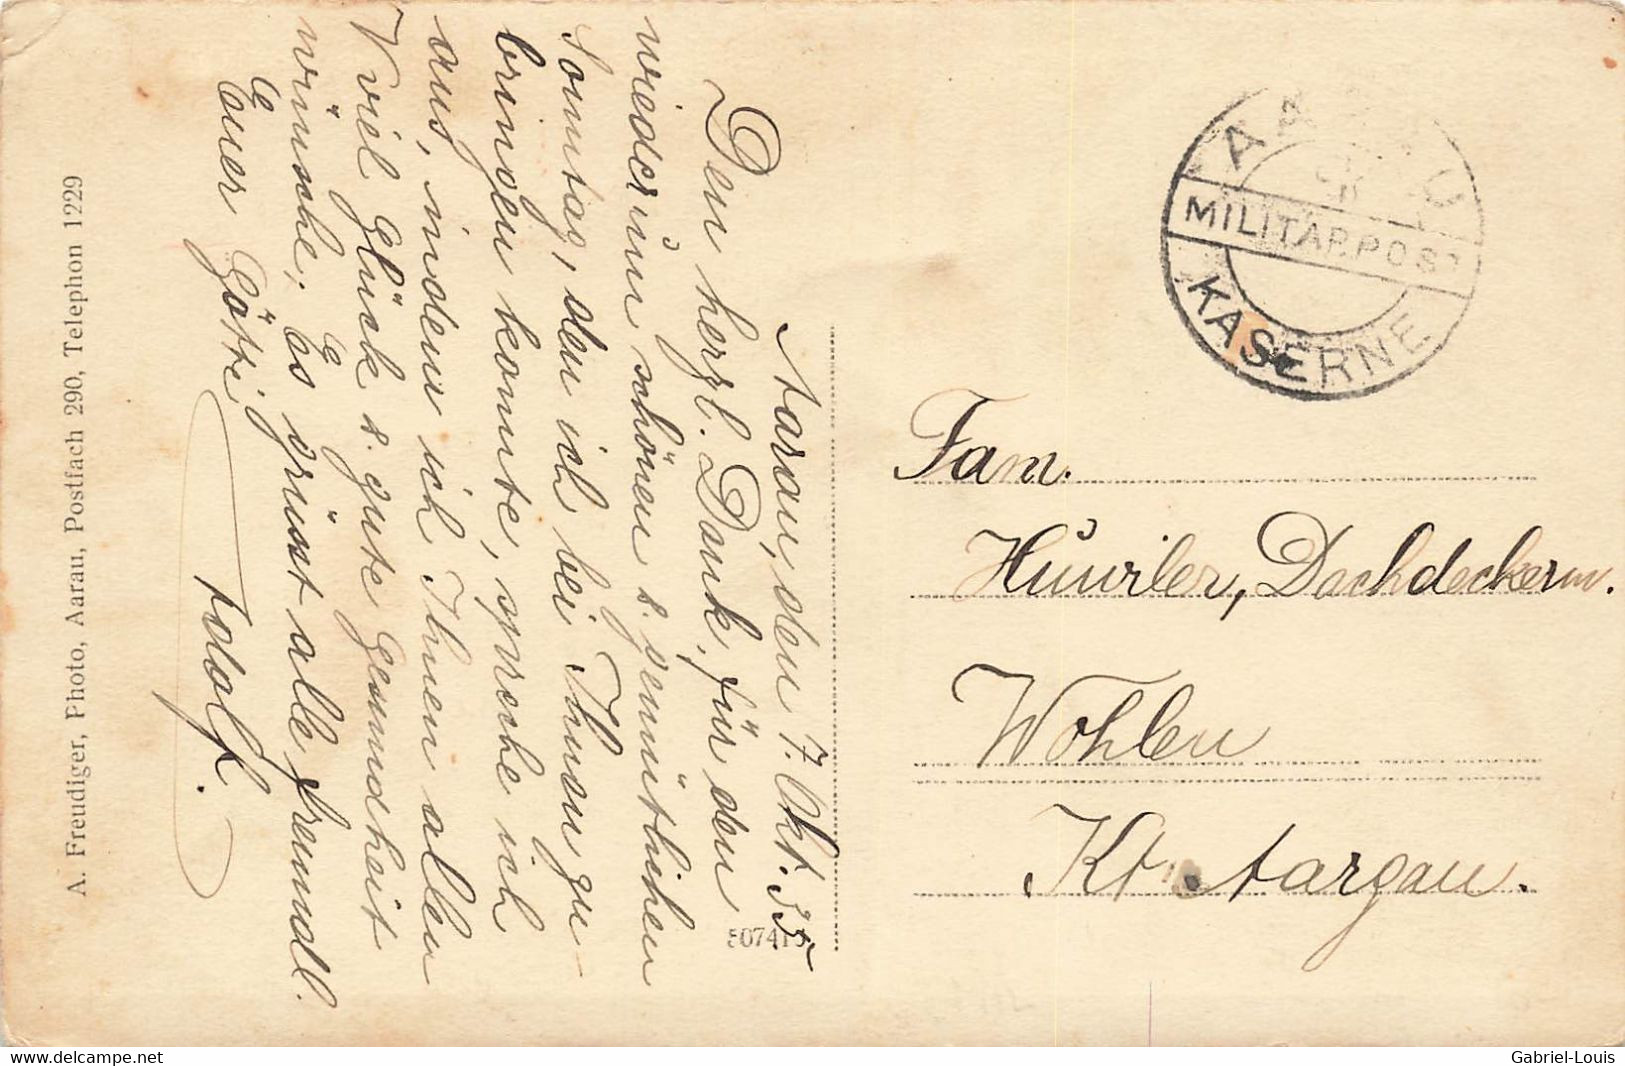 Aarau, den 7. Okt. 35
Den herzl. Dank, für den
wiederum schönen u. gemütlichen
Sonntag, den ich bei Ihnen zu-
bringen konnte, spreche ich
aus, indem ich Ihnen allen
Viel Glück u. gute Gesundheit
wünsche. Es grüsst alle freundl.
Euer Götti
A. Freudiger, Photo, Aarau, Postfach 290, Telephon 1229
MILITÄRPOST
KASERNE
Fam.
Huwiler, Dachdeckerm.
Wohlen
Kt. Aargau.
www.delcampe.net
Gabriel-Louis